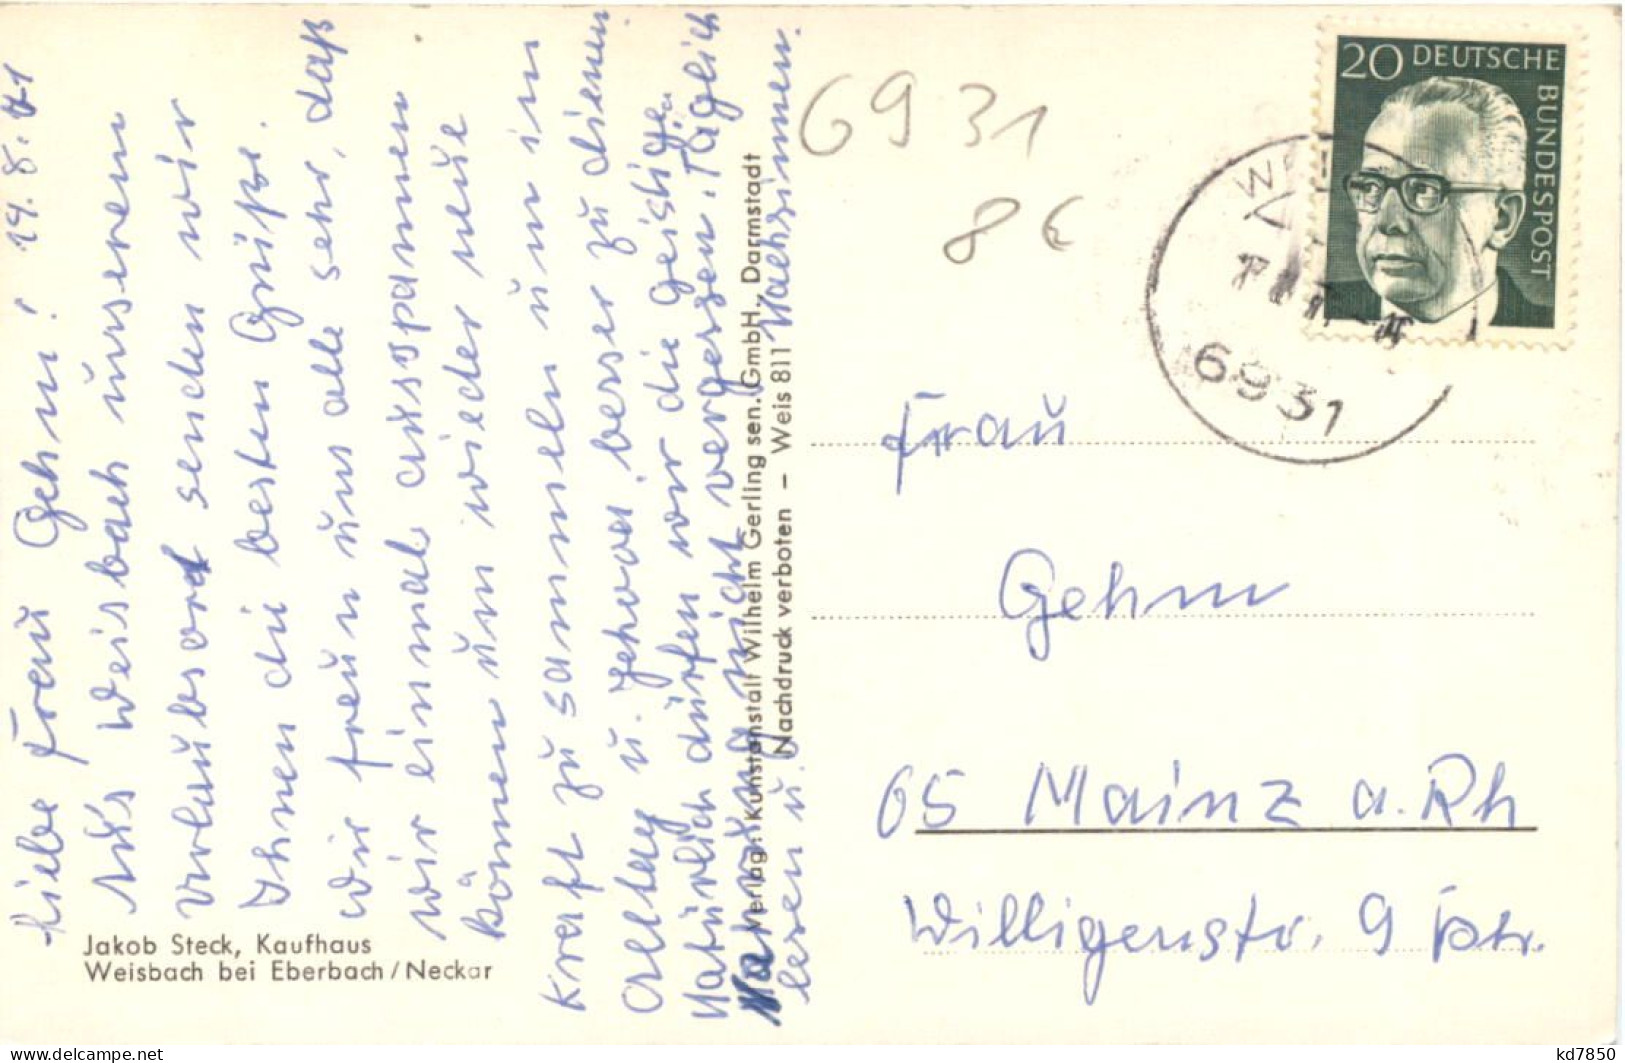 Liebe Frau Gehm! 19.8.71
Aus Weisbach unserem
Urlaubsort senden wir
Ihnen die besten Grüße.
Wir freun uns alle sehr, daß
wir einmal ausspannen
können um wieder neue
Kraft zu sammeln um im
Alltag u. Jehova besser zu dienen.
Natürlich dürfen wir die geistige
Nahrung nicht vergessen. Täglich
lesen u. Nachsinnen.
Jakob Steck, Kaufhaus
Weisbach bei Eberbach/Neckar
Verlag: Kunstanstalt Wilhelm Gerling sen. GmbH., Darmstadt
Nachdruck verboten – Weis 811
6931
8 €
20 DEUTSCHE
BUNDESPOST
6931
Frau
Gehm
65 Mainz a. Rh
Willigenstr. 9 ptr.
kd7850